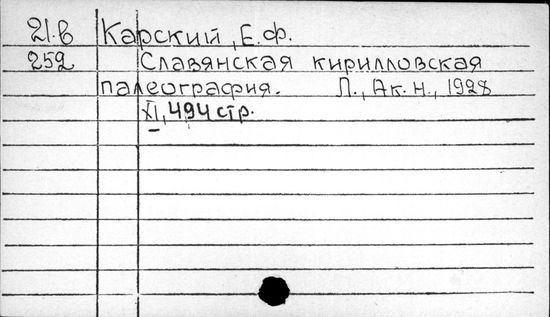 21.в Карский, Е.Ф.
252 Славянская кирилловская
палеография. Л., Ак. Н., 1928
XI, 494 стр.